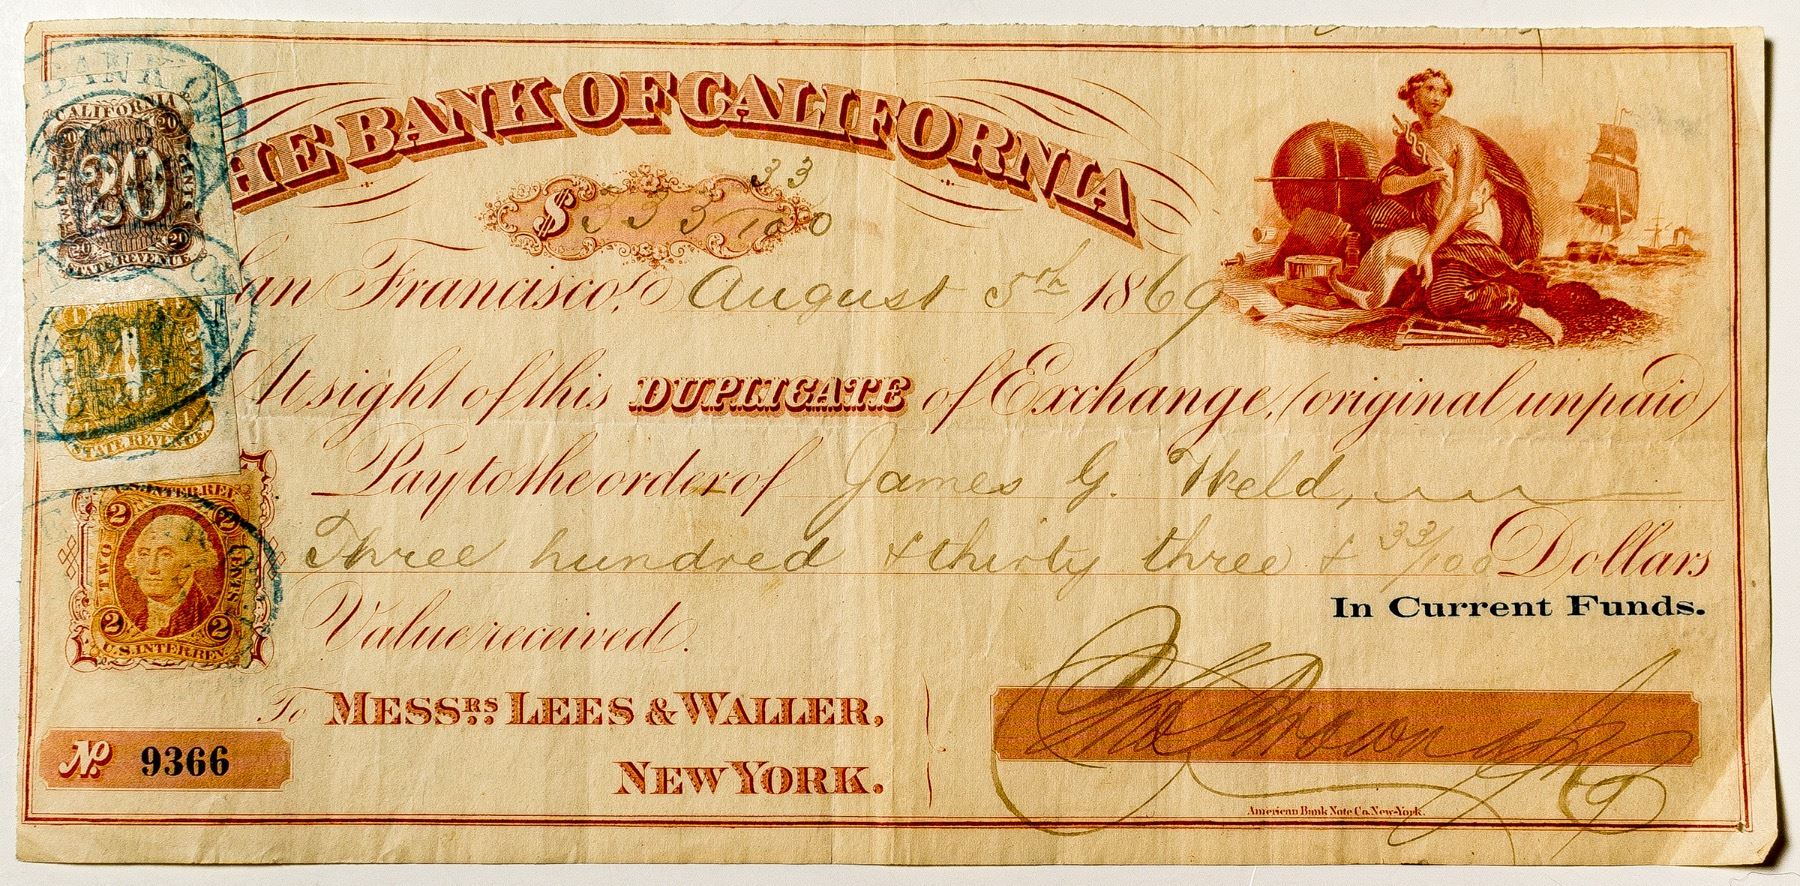 THE BANK OF CALIFORNIA
$ 333 33/100
San Francisco, August 5th 1869
At sight of this DUPLICATE of Exchange, (original unpaid)
Pay to the order of James G. Weld,
Three hundred & thirty three & 33/100 Dollars
In Current Funds.
Value received.
To MESSRS. LEES & WALLER,
NEW YORK.
No. 9366
American Bank Note Co. New-York.
BANK OF
CALIFORNIA
20 20
TWENTY 20 CENTS
20 20
STATE REVENUE
4
STATE REVENUE.
U.S. INTER. REV.
2 2
TWO CENTS
2 2
U.S. INTER. REV.